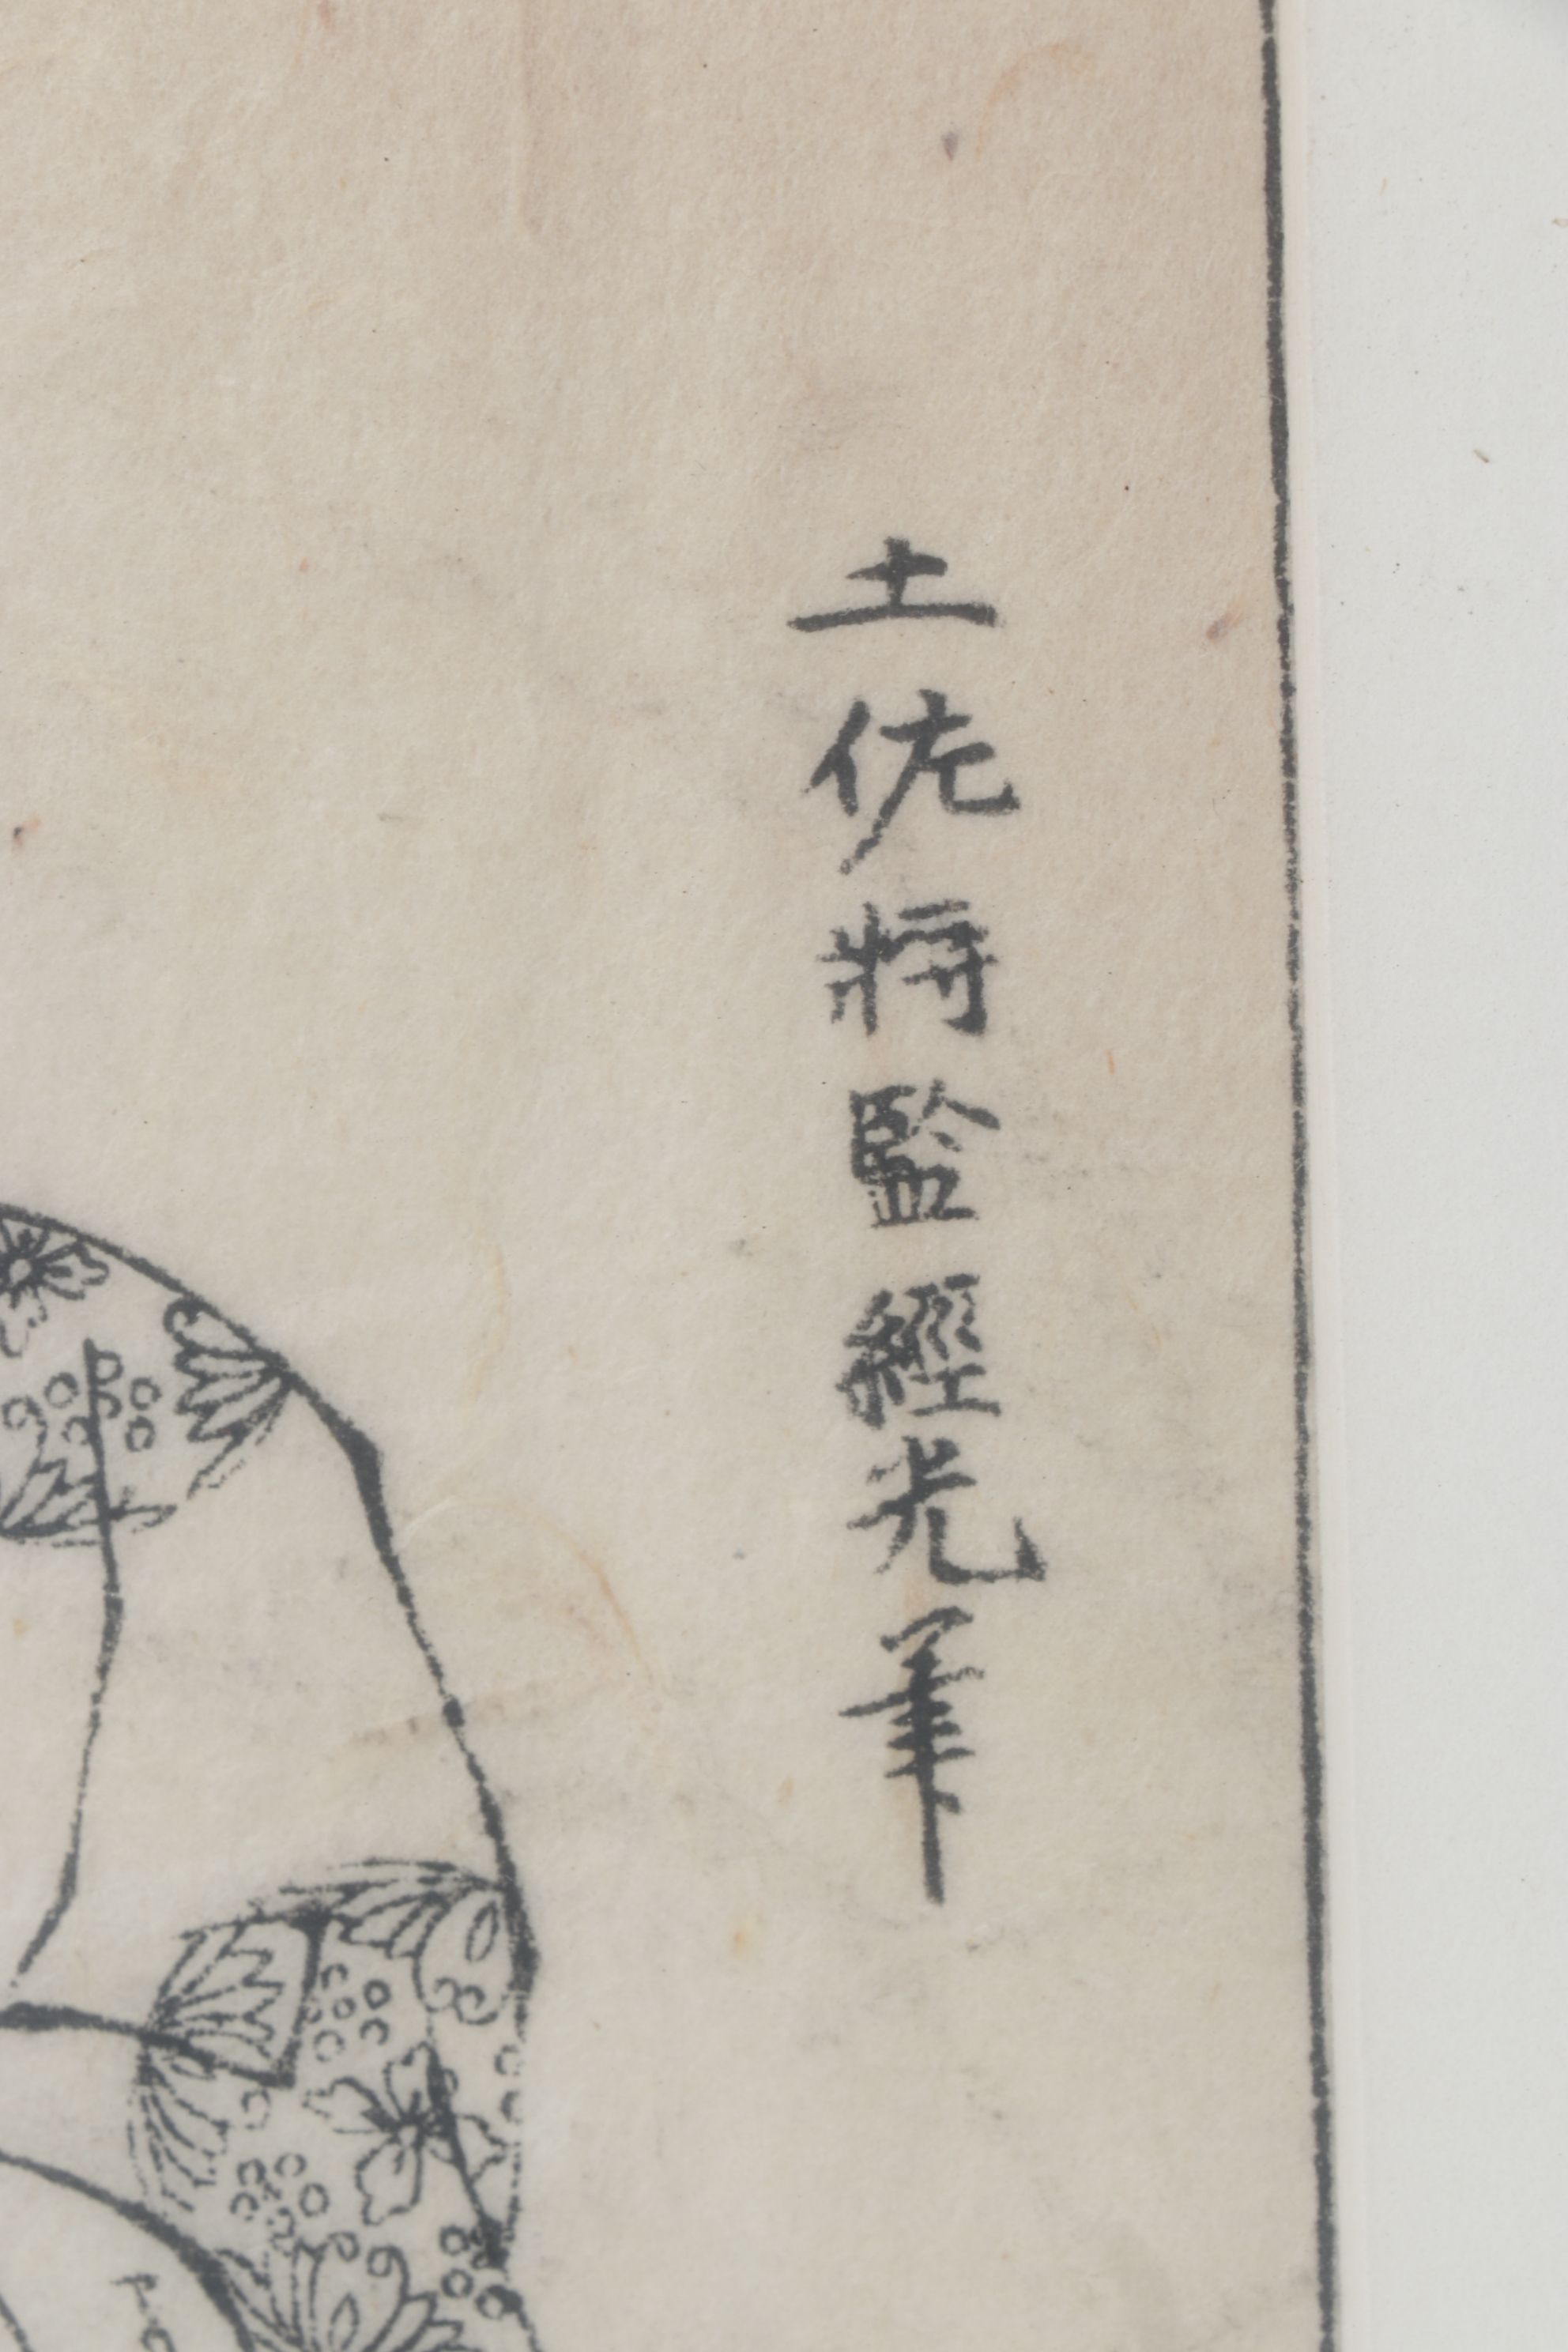 土佐將監經光筆